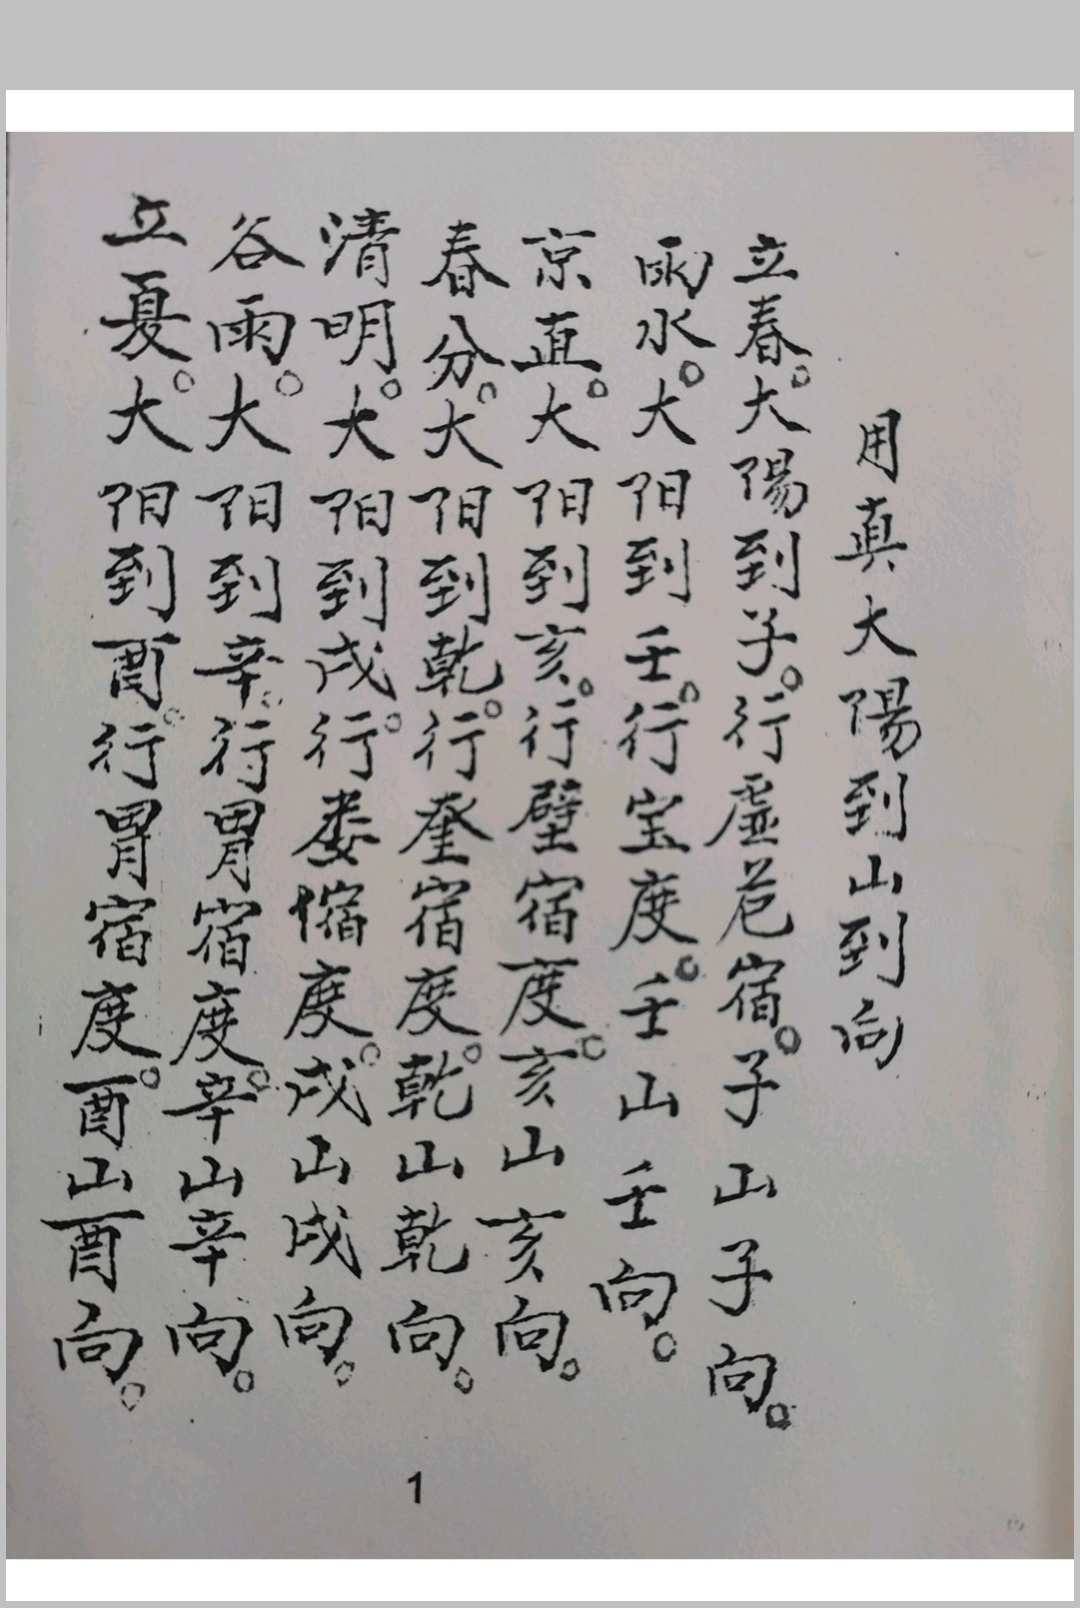 用真大陽到山到向
立春。大陽到子。行虚危宿。子山子向。
雨水。大阳到壬。行室度。壬山壬向。
京直。大阳到亥。行壁宿度。亥山亥向。
春分。大阳到乾。行奎宿度。乾山乾向。
清明。大阳到戍。行娄宿度。戍山戍向。
谷雨。大阳到辛。行胃宿度。辛山辛向。
立夏。大阳到酉。行胃宿度。酉山酉向。
1